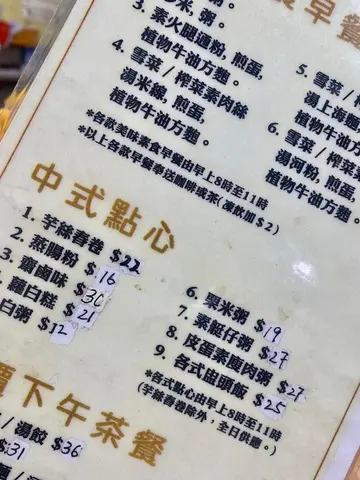 早餐
米、粥。
3. 素火腿通粉，煎蛋，
植物牛油方麵。
4. 雪菜 / 榨菜素肉絲
湯米線，煎蛋，
植物牛油方麵。
5. 雪菜 / 榨
植物牛油
6. 雪菜 / 榨
湯河粉，煎蛋，
植物牛油方麵。
*各款美味素食早餐由早上8時至11時
*以上各款早餐奉送咖啡或茶(凍飲加$2)
中式點心
1. 芋絲春卷 $22
2. 蒸腸粉 $16
3. 齋鹵味 $30
蘿白糕 $21
白粥 $12
6. 粟米粥 $19
7. 素艇仔粥 $27
8. 皮蛋素瘦肉粥 $27
9. 各式碗頭飯 $25
*各式點心由早上8時至11時
(芋絲春卷除外，全日供應。)
下午茶餐
/ 湯餃 $36
$31